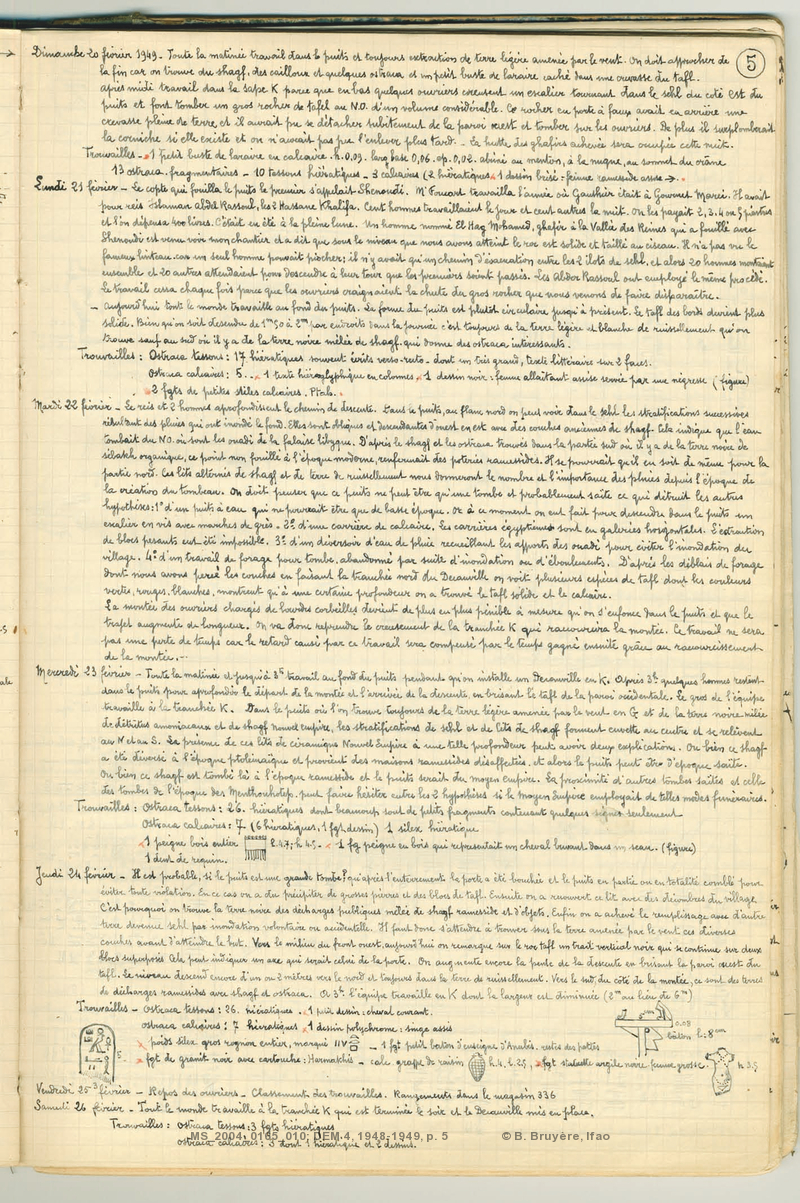 5
Dimanche 20 février 1949 - Toute la matinée travail dans le puits et toujours extraction de terre légère amenée par le vent. On doit approcher de
la fin car on trouve du shagf, des cailloux et quelques ostraca et un petit buste de laraire caché dans une crevasse du tafl.
après midi travail dans la sape K parce que en bas quelques ouvriers creusent un escalier tournant dans le sehl du coté Est du
puits et font tomber un gros rocher de tafel au N.O. d'un volume considérable. Ce rocher en porte à faux avait en arrière une
crevasse pleine de terre et il aurait pu se détacher subitement de la paroi ouest et tomber sur les ouvriers. De plus il surplomberait
la corniche si elle existe et on n'aurait pas pu l'enlever plus tard. - La hutte des ghafirs achevée sera occupée cette nuit.
Trouvailles - 1 petit buste de laraire en calcaire. h. 0,09. larg base 0,06. ep. 0,02. abimé au menton, à la nuque, au sommet du crâne
13 ostraca fragmentaires - 10 tessons hiératiques - 3 calcaires (2 hiératiques, 1 dessin brisé: femme ramesside assise →.
Lundi 21 février - Le copte qui fouilla le puits le premier s'appelait Shenoudi. Mr Foucart travailla l'année où Gauthier était à Gournet Mareï. Il avait
pour réis Ahman Abdel Rassoul, les 2 Hassane Khalifa. Cent hommes travaillaient le jour et cent autres la nuit. On les payait 2, 3, 4 ou 5 piastres
et l'on dépensa 400 livres. C'était en été à la pleine lune. Un homme nommé El Hag Mohamed, ghafir à la Vallée des Reines qui a fouillé avec
Shenoudi est venu voir mon chantier et a dit que sous le niveau que nous avons atteint le roc est solide et taillé au ciseau. Il n'a pas vu le
fameux linteau car un seul homme pouvait piocher; il n'y avait qu'un chemin d'évacuation entre les 2 îlots de sehl et alors 20 hommes montaient
ensemble et 20 autres attendaient pour descendre à leur tour que les premiers soient passés. Les Abder Rassoul ont employé le même procédé.
Le travail cessa chaque fois parce que les ouvriers craignaient la chute du gros rocher que nous venons de faire disparaître.
- Aujourd'hui tout le monde travaille au fond du puits. La forme du puits est plutôt circulaire jusqu'à présent. Le tafl des bords devient plus
solide. Bien qu'on soit descendu de 1m50 à 2m par endroits dans la journée c'est toujours de la terre légère et blanche de ruissellement qu'on
trouve sauf au sud où il y a de la terre noire mêlée de shagf qui donne des ostraca intéressants.
Trouvailles: Ostraca tessons: 17 hiératiques souvent écrits verso-recto - dont un très grand, texte littéraire sur 2 faces.
Ostraca calcaires: 5 - 1 texte hiéroglyphique en colonnes, 1 dessin noir: femme allaitant assise servie par une négresse (figure)
2 fgts de petites stèles calcaires. Ptah.
Mardi 22 février - Le reis et 2 hommes approfondissent le chemin de descente. Dans le puits, au flanc nord on peut voir dans le sehl les stratifications successives
résultant des pluies qui ont inondé le fond. Elles sont obliques et descendantes d'ouest en est avec des couches anciennes de shagf. Cela indique que l'eau
tombait du N.O. où sont les ouadi de la falaise libyque. D'après le shagf et les ostraca trouvés dans la partie sud où il y a de la terre noire de
sebakh organique, ce point non fouillé à l'époque moderne, renfermait des poteries ramessides. Il se pourrait qu'il en soit de même pour la
partie nord. Ces lits alternés de shagf et de terre de ruissellement nous donneront le nombre et l'importance des pluies depuis l'époque de
la création du tombeau. On doit penser que ce puits ne peut être qu'une tombe et probablement saïte ce qui détruit les autres
hypothèses: 1° d'un puits à eau qui ne pourrait être que de basse époque. Or à ce moment on eut fait pour descendre dans le puits un
escalier en vis avec marches de grès. 2° d'une carrière de calcaire. Les carrières égyptiennes sont en galeries horizontales. L'extraction
de blocs pesants eut été impossible. 3° d'un déversoir d'eau de pluie recueillant les apports des ouadi pour éviter l'inondation du
village. 4° d'un travail de forage pour tombe, abandonné par suite d'inondation ou d'éboulements. D'après les déblais de forage
dont nous avons percé les couches en faisant la tranchée nord du Decauville on voit plusieurs espèces de tafl dont les couleurs
vertes, rouges, blanches, montrent qu'à une certaine profondeur on a trouvé le tafl solide et le calcaire.
La montée des ouvriers chargés de lourdes corbeilles devient de plus en plus pénible à mesure qu'on s'enfonce dans le puits et que le
trajet augmente de longueur. On va donc reprendre le creusement de la tranchée K qui raccourcira la montée. Le travail ne sera
pas une perte de temps car le retard causé par ce travail sera compensé par le temps gagné ensuite grâce au raccourcissement
de la montée.
Mercredi 23 février - Toute la matinée et jusqu'à 3h travail au fond du puits pendant qu'on installe un Decauville en K. Après 3h quelques hommes restent
dans le puits pour approfondir le départ de la montée et l'arrivée de la descente, en brisant le tafl de la paroi occidentale. Le gros de l'équipe
travaille à la tranchée K. Dans le puits où l'on trouve toujours de la terre légère amenée par le vent en G et de la terre noire mêlée
de détritus amoniacaux et de shagf Nouvel Empire, les stratifications de sehl et de lits de shagf forment cuvette au centre et se relèvent
au N et au S. La présence de ces lits de céramique Nouvel Empire à une telle profondeur peut avoir deux explications. Ou bien ce shagf
a été déversé à l'époque ptolémaïque et provient des maisons ramessides désaffectées, et alors le puits peut être d'époque saïte.
Ou bien ce shagf est tombé là à l'époque ramesside et le puits serait du moyen empire. La proximité d'autres tombes saïtes et celle
des tombes de l'époque des Menthouhotep, peut faire hésiter entre les 2 hypothèses si le Moyen Empire employait de telles modes funéraires.
Trouvailles: Ostraca tessons: 26. hiératiques dont beaucoup sont de petits fragments contenant quelques signes seulement
Ostraca calcaires: 7 (6 hiératiques, 1 fgt. dessin) 1 silex hiératique
1 peigne bois entier l. 47; h. 45. - 1 fg peigne en bois qui représentait un cheval buvant dans un seau. (figure)
1 dent de requin.
Jeudi 24 février - Il est probable, si le puits est une grande tombe, qu'après l'enterrement la porte a été bouchée et le puits en partie ou en totalité comblé pour
éviter toute violation. En ce cas on a du précipiter de grosses pierres et des blocs de tafl. Ensuite on a recouvert ce lit avec des décombres du village
C'est pourquoi on trouve la terre noire des décharges publiques mêlée de shagf ramesside et d'objets. Enfin on a achevé le remplissage avec d'autre
terre devenue sehl par inondation volontaire ou accidentelle. Il faut donc s'attendre à trouver sous la terre amenée par le vent ces diverses
couches avant d'atteindre le but. Vers le milieu du front ouest, aujourd'hui on remarque sur le roc tafl un trait vertical noir qui se continue sur deux
blocs superposés. Cela peut indiquer un axe qui serait celui de la porte. On augmente encore la pente de la descente en brisant la paroi ouest du
tafl. Le niveau descend encore d'un ou 2 mètres vers le nord et toujours dans la terre de ruissellement. Vers le sud, du côté de la montée, ce sont des terres
de décharges ramessides avec shagf et ostraca. A 3h l'équipe travaille en K dont la largeur est diminuée (2m au lieu de 6m)
Trouvailles - Ostraca tessons: 26. hiératiques - 1 petit dessin: cheval courant.
ostraca calcaires: 7 hiératiques, 1 dessin polychrome: singe assis
poids silex gros rognon entier, marqué IIV - 1 fgt petit baton d'enseigne d'Anubis. restes des pattes
fgt de granit noir avec cartouche: Harmakhis - calc. grappe de raisin h. 4. l. 2.5, fgt statuette argile noire, femme grosse.
5m
0,08
bâton h: 8cm
h 3.5
Vendredi 25 février - Repos des ouvriers - Classement des trouvailles. Rangements dans le magasin 336
Samedi 26 février - Tout le monde travaille à la tranchée K qui est terminée le soir et le Decauville mis en place.
Trouvailles: ostraca tessons: 3 fgts hiératiques
ostraca calcaires: 3 dont 1 hiératique et 2 dessins.
MS_2004_0165_010; DEM 4, 1948-1949, p. 5 © B. Bruyère, Ifao